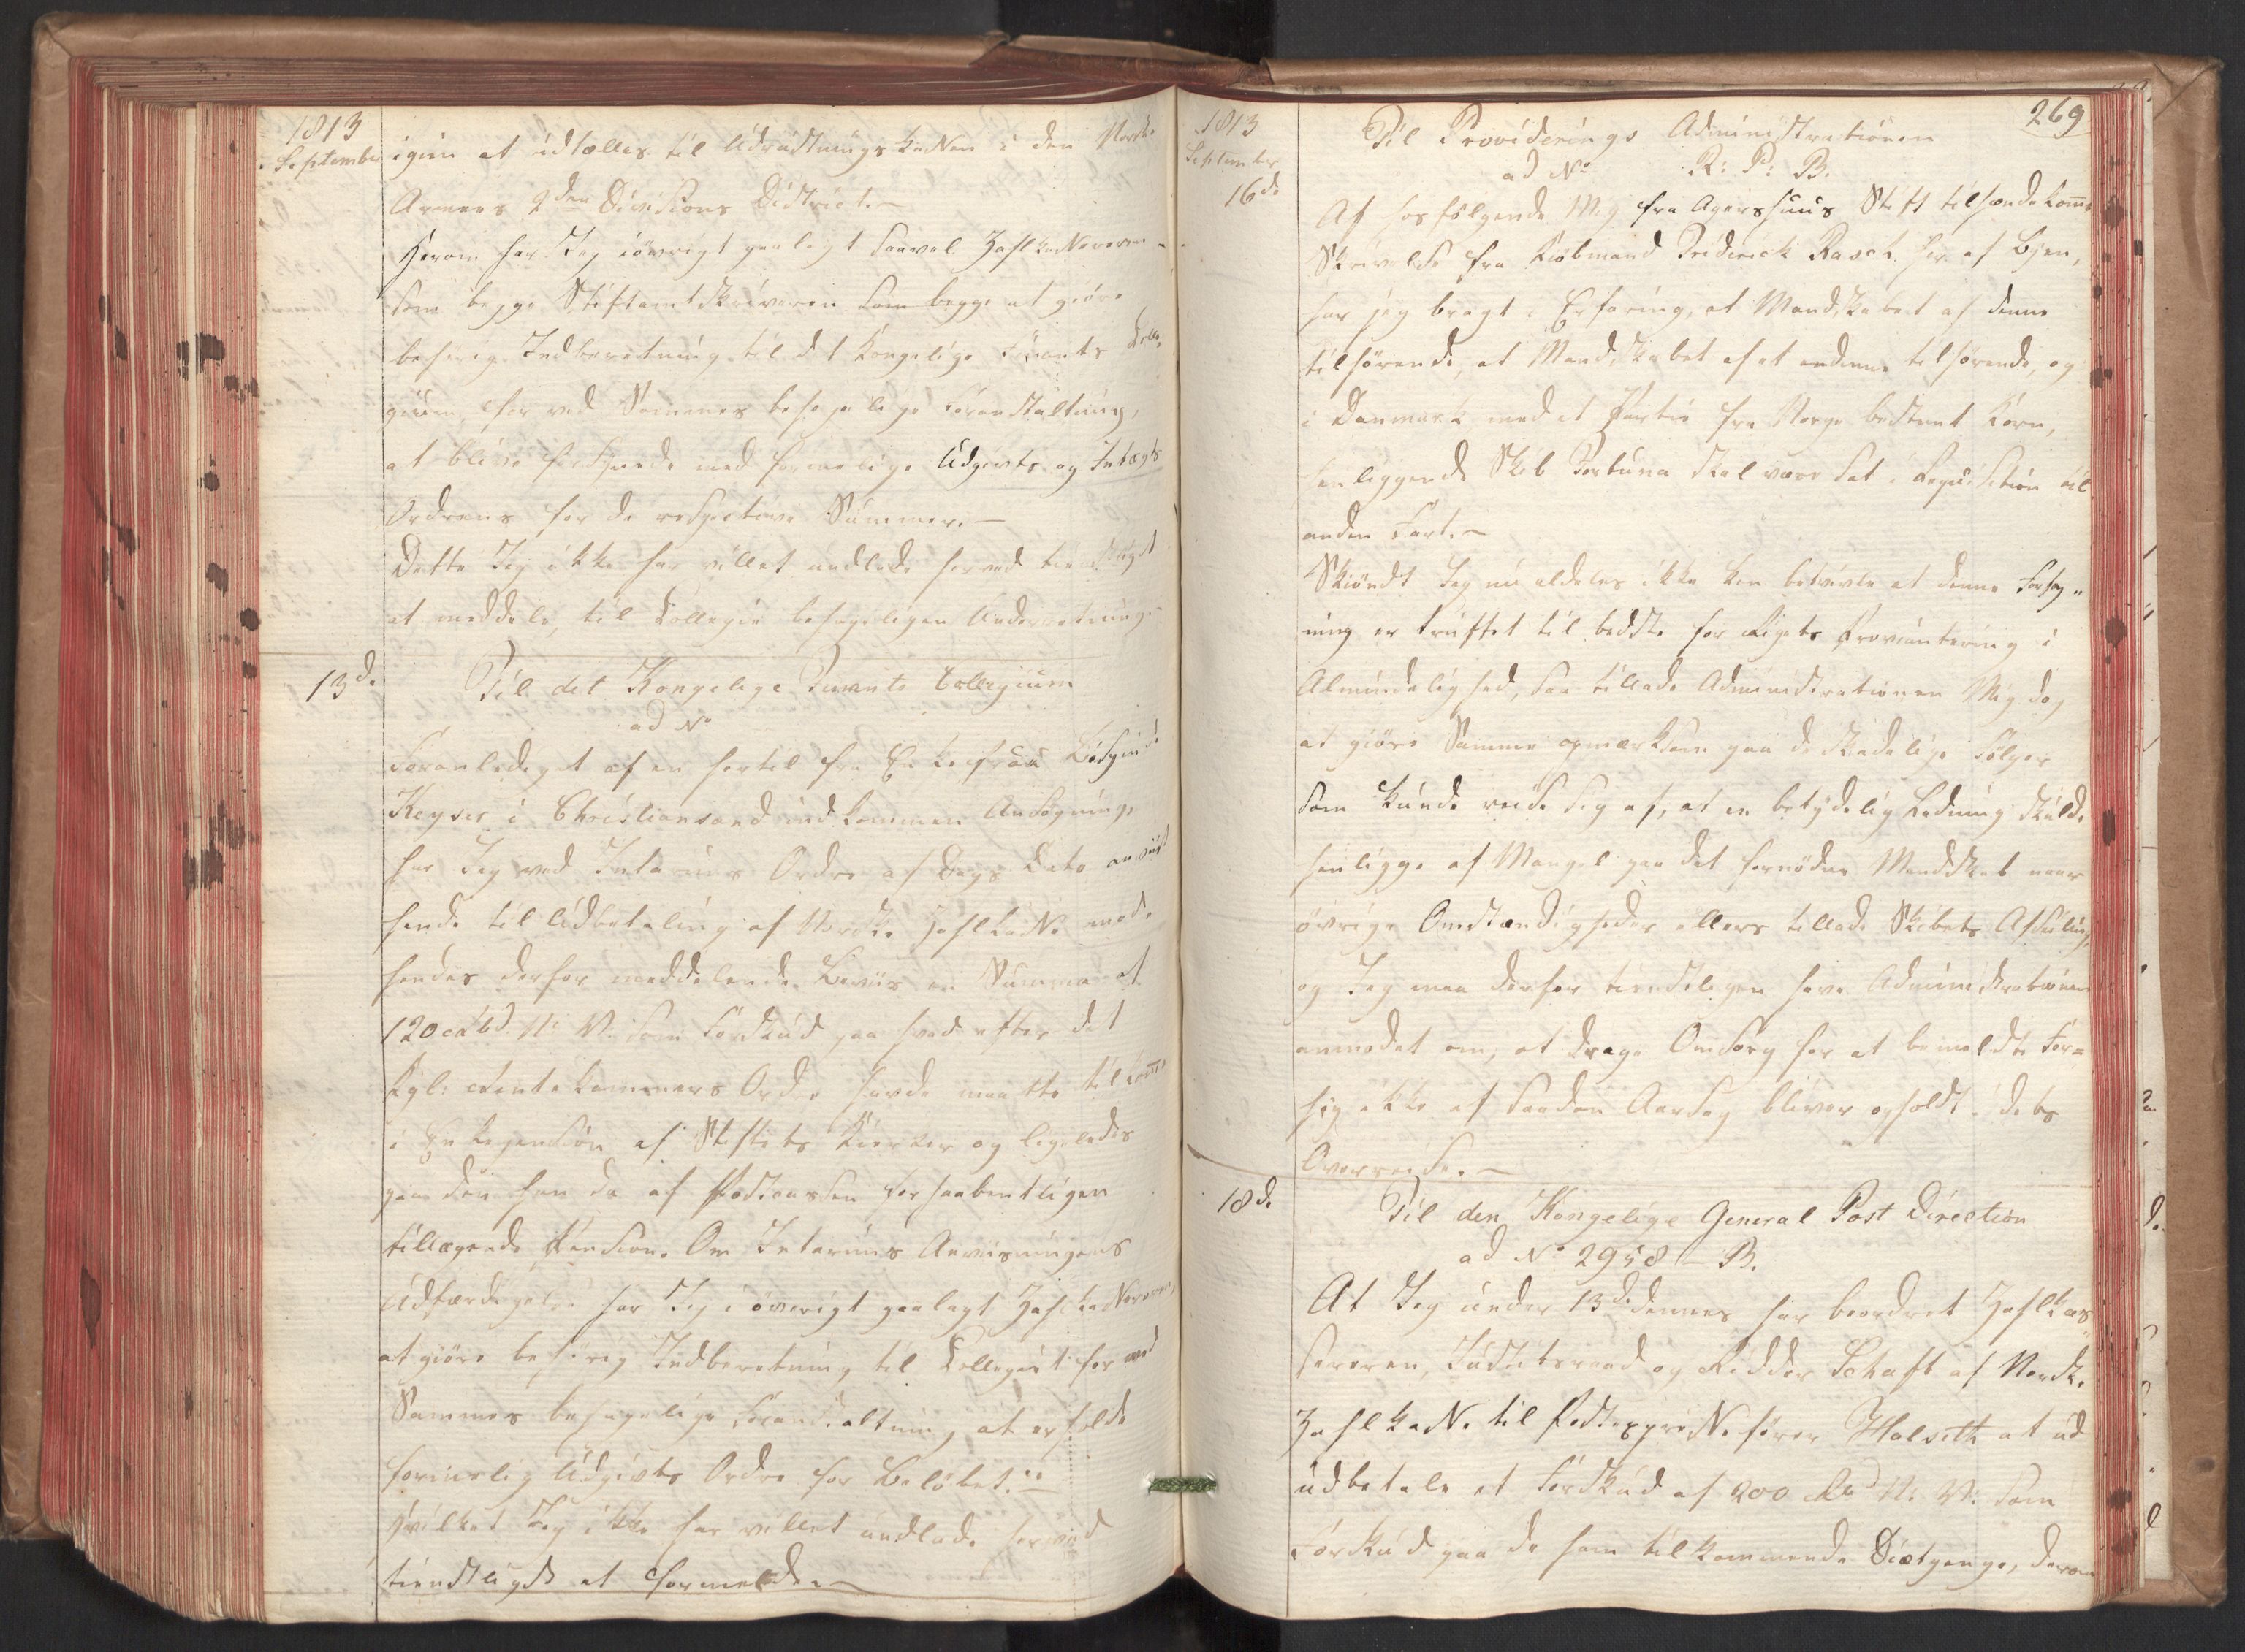 1813
September
igien at indfælles til Udredningskassen i den Norske
Armees 2den Divisions District.-
Herom har Jeg iövrigt paalagt saavel Zahlkassereren
som begge Stiftamtskriveren som begge at giöre
behörig Indberetning til det Kongelige Finants Colle,
gium, for ved Sammes behagelige Foranstaltning,
at blive forsynede med formelige Udgivts og Indtægts
Ordrers for de respective Summer.-
Dette Jeg ikke har villet undlade herved tienstligst
at meddele, til Collegii behagelige Underretning.-
13d.
Til det Kongelige Finants Collegium
ad No
Foranlediget af en hertil fra Enkefrue
Keyser i Christiansand indkommen Ansögning,
har Jeg ved Interims Ordre af Dags Dato anviist
hende til Udbetaling af Norske Zahlkasse mod
hendes derfor meddelende Beviis en Summa af
120 Rbd. N: V: som Forskud paa hvad efter det
Kgl: Rentekammers Ordre hende maatte tilkomme
i Enkepension af Stiftets Kirker og ligeledes
paa den hende af Postcassen forhaabentligen
tillægende Pension. Om Interims Anvisningens
Udfærdigelse har Jeg i övrigt paalagt Zahlkassereren,
at giöre behörig Indberetning til Collegiet for ved
Sammes behagelige Foranstaltning at erholde
formelig Udgivts Ordre for Belöbet.-
Hvilket Jeg ikke har villet undlade herved
tienstligst at formelde.-
269
1813
September
16d.
Til Providerings Administrationen
ad No R: P: B.
Af hosfölgende Mig fra Agershuus Stift tilhændekomne
Skrivelse fra Kiöbmand Friderich Rasch her af Byen,
har jeg bragt i Erfaring, at Mandskabet af denne
tilhörende, at Mandskabet af et endnu tilhörende, og
i Danmark med et Partie fra Norge bestemt Korn,
henliggende Skib Fortuna skal være sat i Requisition til
anden Fart.-
Skiöndt Jeg nu aldeles ikke kan betvivle at denne Forföy„
ning er truffet til bedste for Rigets Proviantering i
Almindelighed, saa tillade Administrationen Mig dog
at giöre Samme opmærksom paa de skadelige Fölger
som kunde reise sig af, at en betydelig Ladning skulde
henligge af Mangel paa det fornödne Mandskab naar
övrige Omstændigheder ellers tillade Skibets Afseiling,
og Jeg maa derfor tienstligen have Administrationen
anmodet om, at drage Omsorg for at bemeldte Far„
töy ikke af saadan Aarsag bliver opholdt i dets
Overreise.-
18d.
Til den Kongelige General Post Direction
ad No 2958 - B.
At Jeg under 13d. dennes har beordret Zahlkas„
sereren, Justitsraad og Ridder Schaft af Norske
Zahlkasse til Postexpressefører Halseth at ud
udbetale et Forskud af 200 Rbd N: V: som
Forskud paa de ham tilkommende Diætpenge, derom